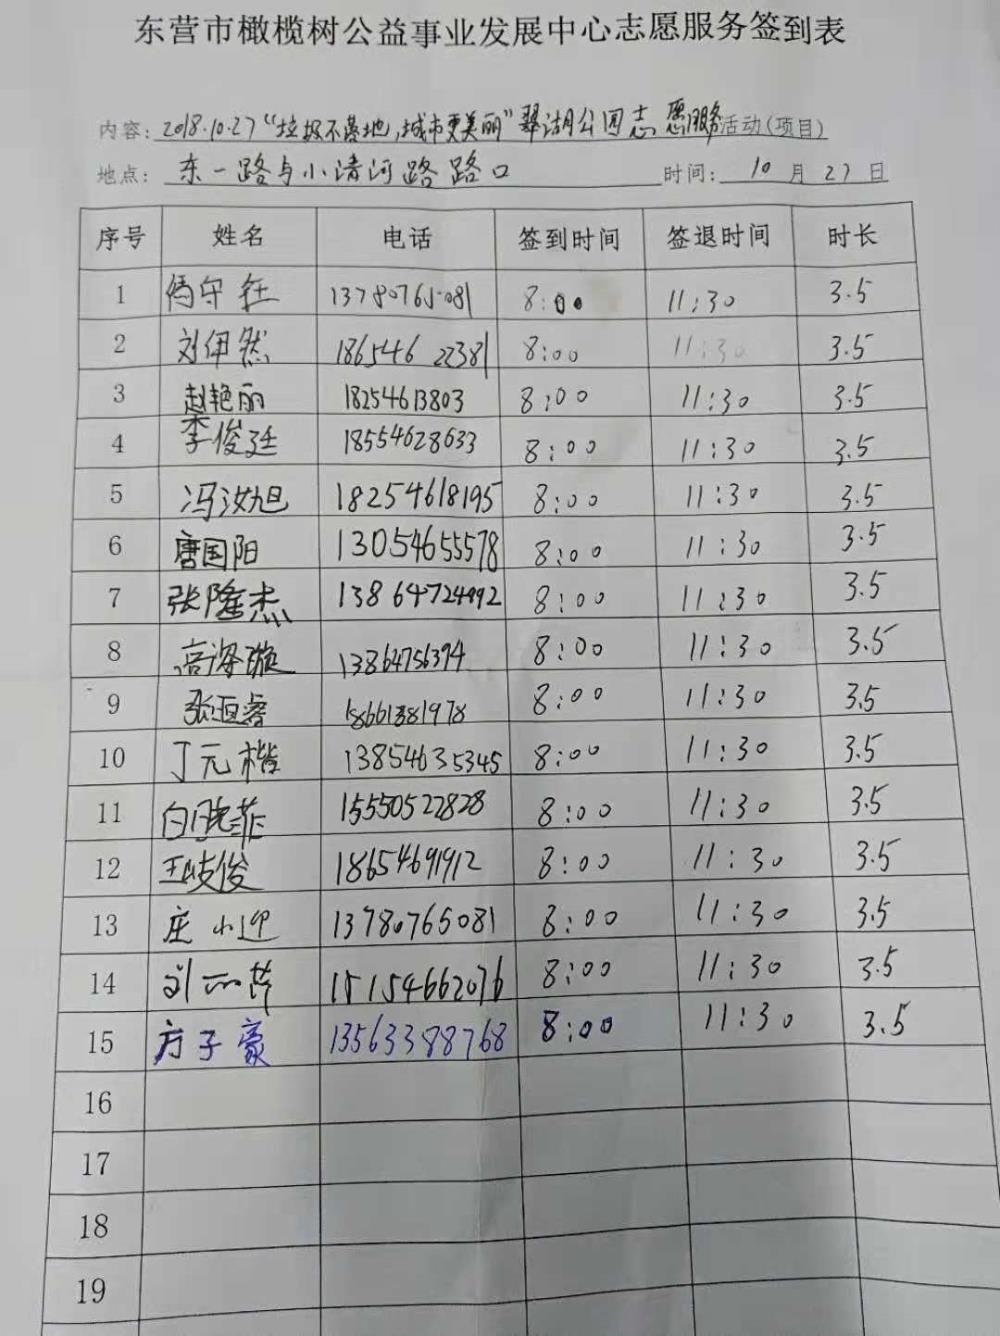 东营市橄榄树公益事业发展中心志愿服务签到表
内容：2018.10.27“垃圾不落地,城市更美丽”翠湖公园志愿服务活动(项目)
地点：东一路与小清河路路口 时间：10月27日
序号 姓名 电话 签到时间 签退时间 时长
1 13780765081 8:00 11:30 3.5
2 刘伊然 18654622381 8:00 11:30 3.5
3 赵艳丽 18254613803 8:00 11:30 3.5
4 李俊廷 18554628633 8:00 11:30 3.5
5 冯汝旭 18254618195 8:00 11:30 3.5
6 唐国阳 13054655578 8:00 11:30 3.5
7 张隆杰 13864724992 8:00 11:30 3.5
8 8:00 11:30 3.5
9 张亘睿 18661381978 8:00 11:30 3.5
10 丁元楷 13854635345 8:00 11:30 3.5
11 白晓菲 15550522828 8:00 11:30 3.5
12 王岐俊 18654691912 8:00 11:30 3.5
13 庄小迎 13780765081 8:00 11:30 3.5
14 15154662076 8:00 11:30 3.5
15 方子豪 13563388768 8:00 11:30 3.5
16
17
18
19